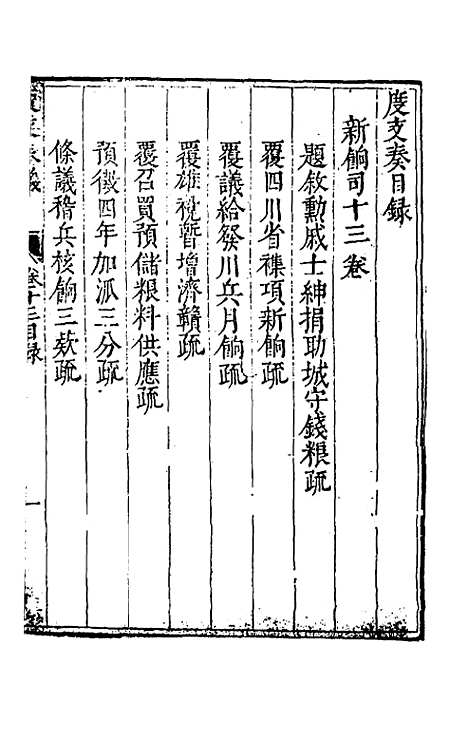 度支奏目録
新餉司十三卷
題敘勳戚士紳捐助城守錢粮疏
覆四川省襍項新餉疏
覆議給發川兵月餉疏
覆雄税暫增濟贛疏
覆召買預儲粮料供應疏
預徵四年加派三分疏
條議稽兵核餉三欵疏
卷十三目録
一